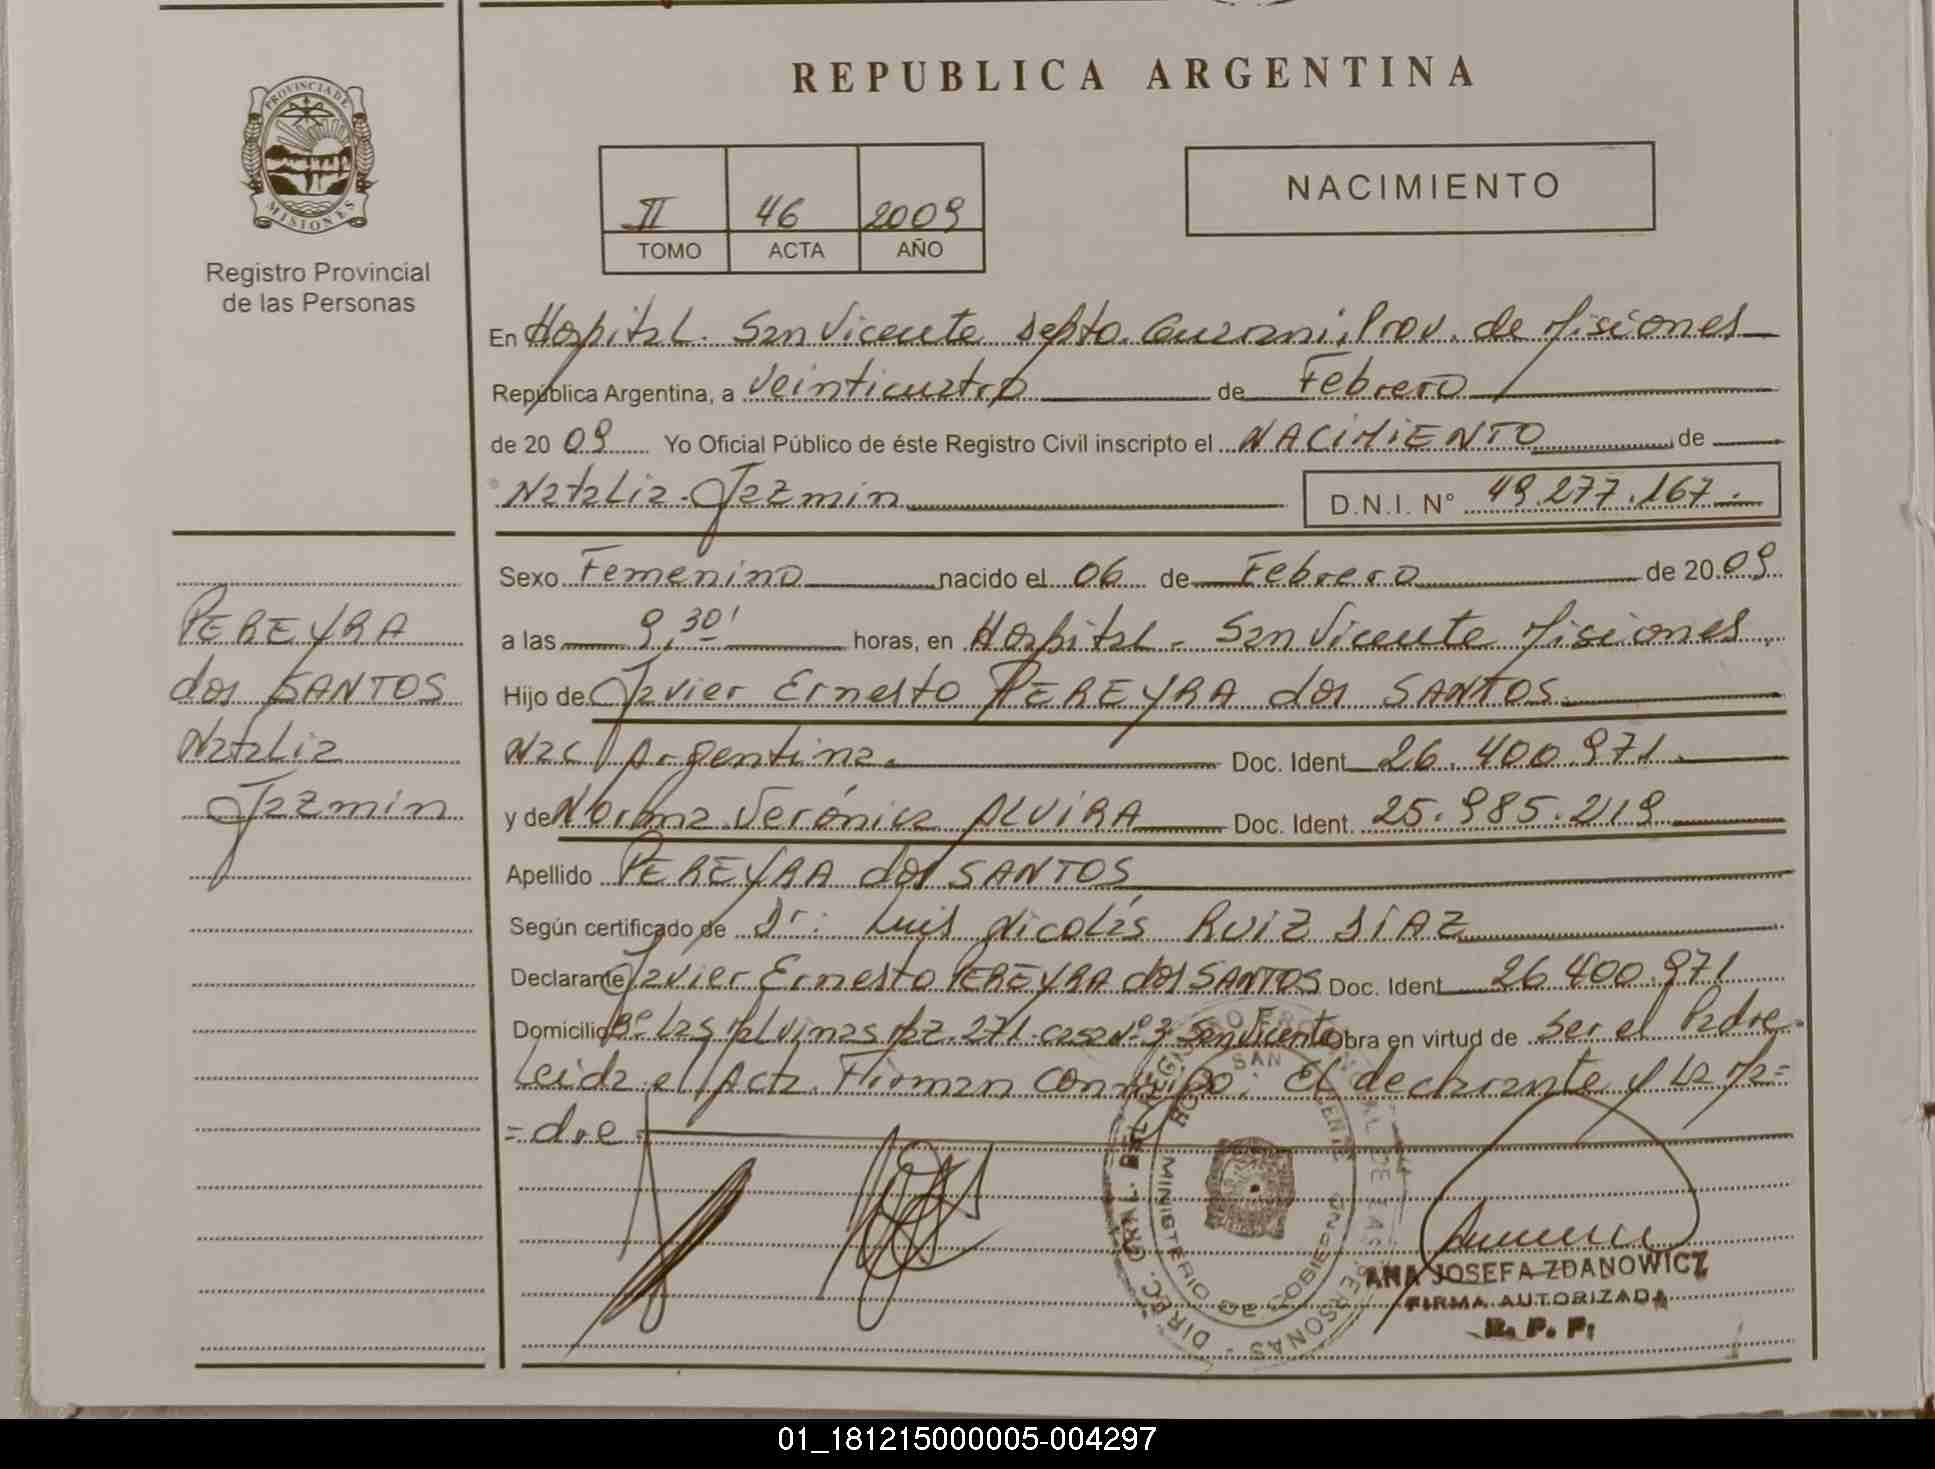 PROVINCIA DE
MISIONES
Registro Provincial
de las Personas
REPUBLICA ARGENTINA
II 46 2009
TOMO ACTA AÑO
NACIMIENTO
En Hospital. San Vicente Depto. Guarani, Prov. de Misiones
República Argentina, a Veinticuatro de Febrero
de 20 09 Yo Oficial Público de éste Registro Civil inscripto el NACIMIENTO de
Natalia Jazmin D.N.I. N° 49.277.167.
Sexo Femenino nacido el 06 de Febrero de 20 09
a las 9,30' horas, en Hospital - San Vicente Misiones
Hijo de Javier Ernesto PEREYRA dos SANTOS
Nac Argentina. Doc. Ident 26.400.971.
y de Norma Verónica ALVIRA Doc. Ident. 25.985.219
Apellido PEREYRA dos SANTOS
Según certificado de Dr: Luis Nicolás RUIZ DÍAZ
Declarante Javier Ernesto PEREYRA dos SANTOS Doc. Ident 26.400.971
Domicilio Bº Las Malvinas Mz. 271 casa Nº 3 San Vicente Obra en virtud de ser el Padre.
Leida el Acta. Firman conmigo: El declarante y La Ma=
=dre
PEREYRA
dos SANTOS
Natalia
Jazmin
DIREC. GRAL. DEL REGISTRO PROVINCIAL DE LAS PERSONAS
HOSPITAL SAN VICENTE
MINISTERIO DE GOBIERNO
ANA JOSEFA ZDANOWICZ
FIRMA AUTORIZADA
R. P. P.
01_181215000005-004297